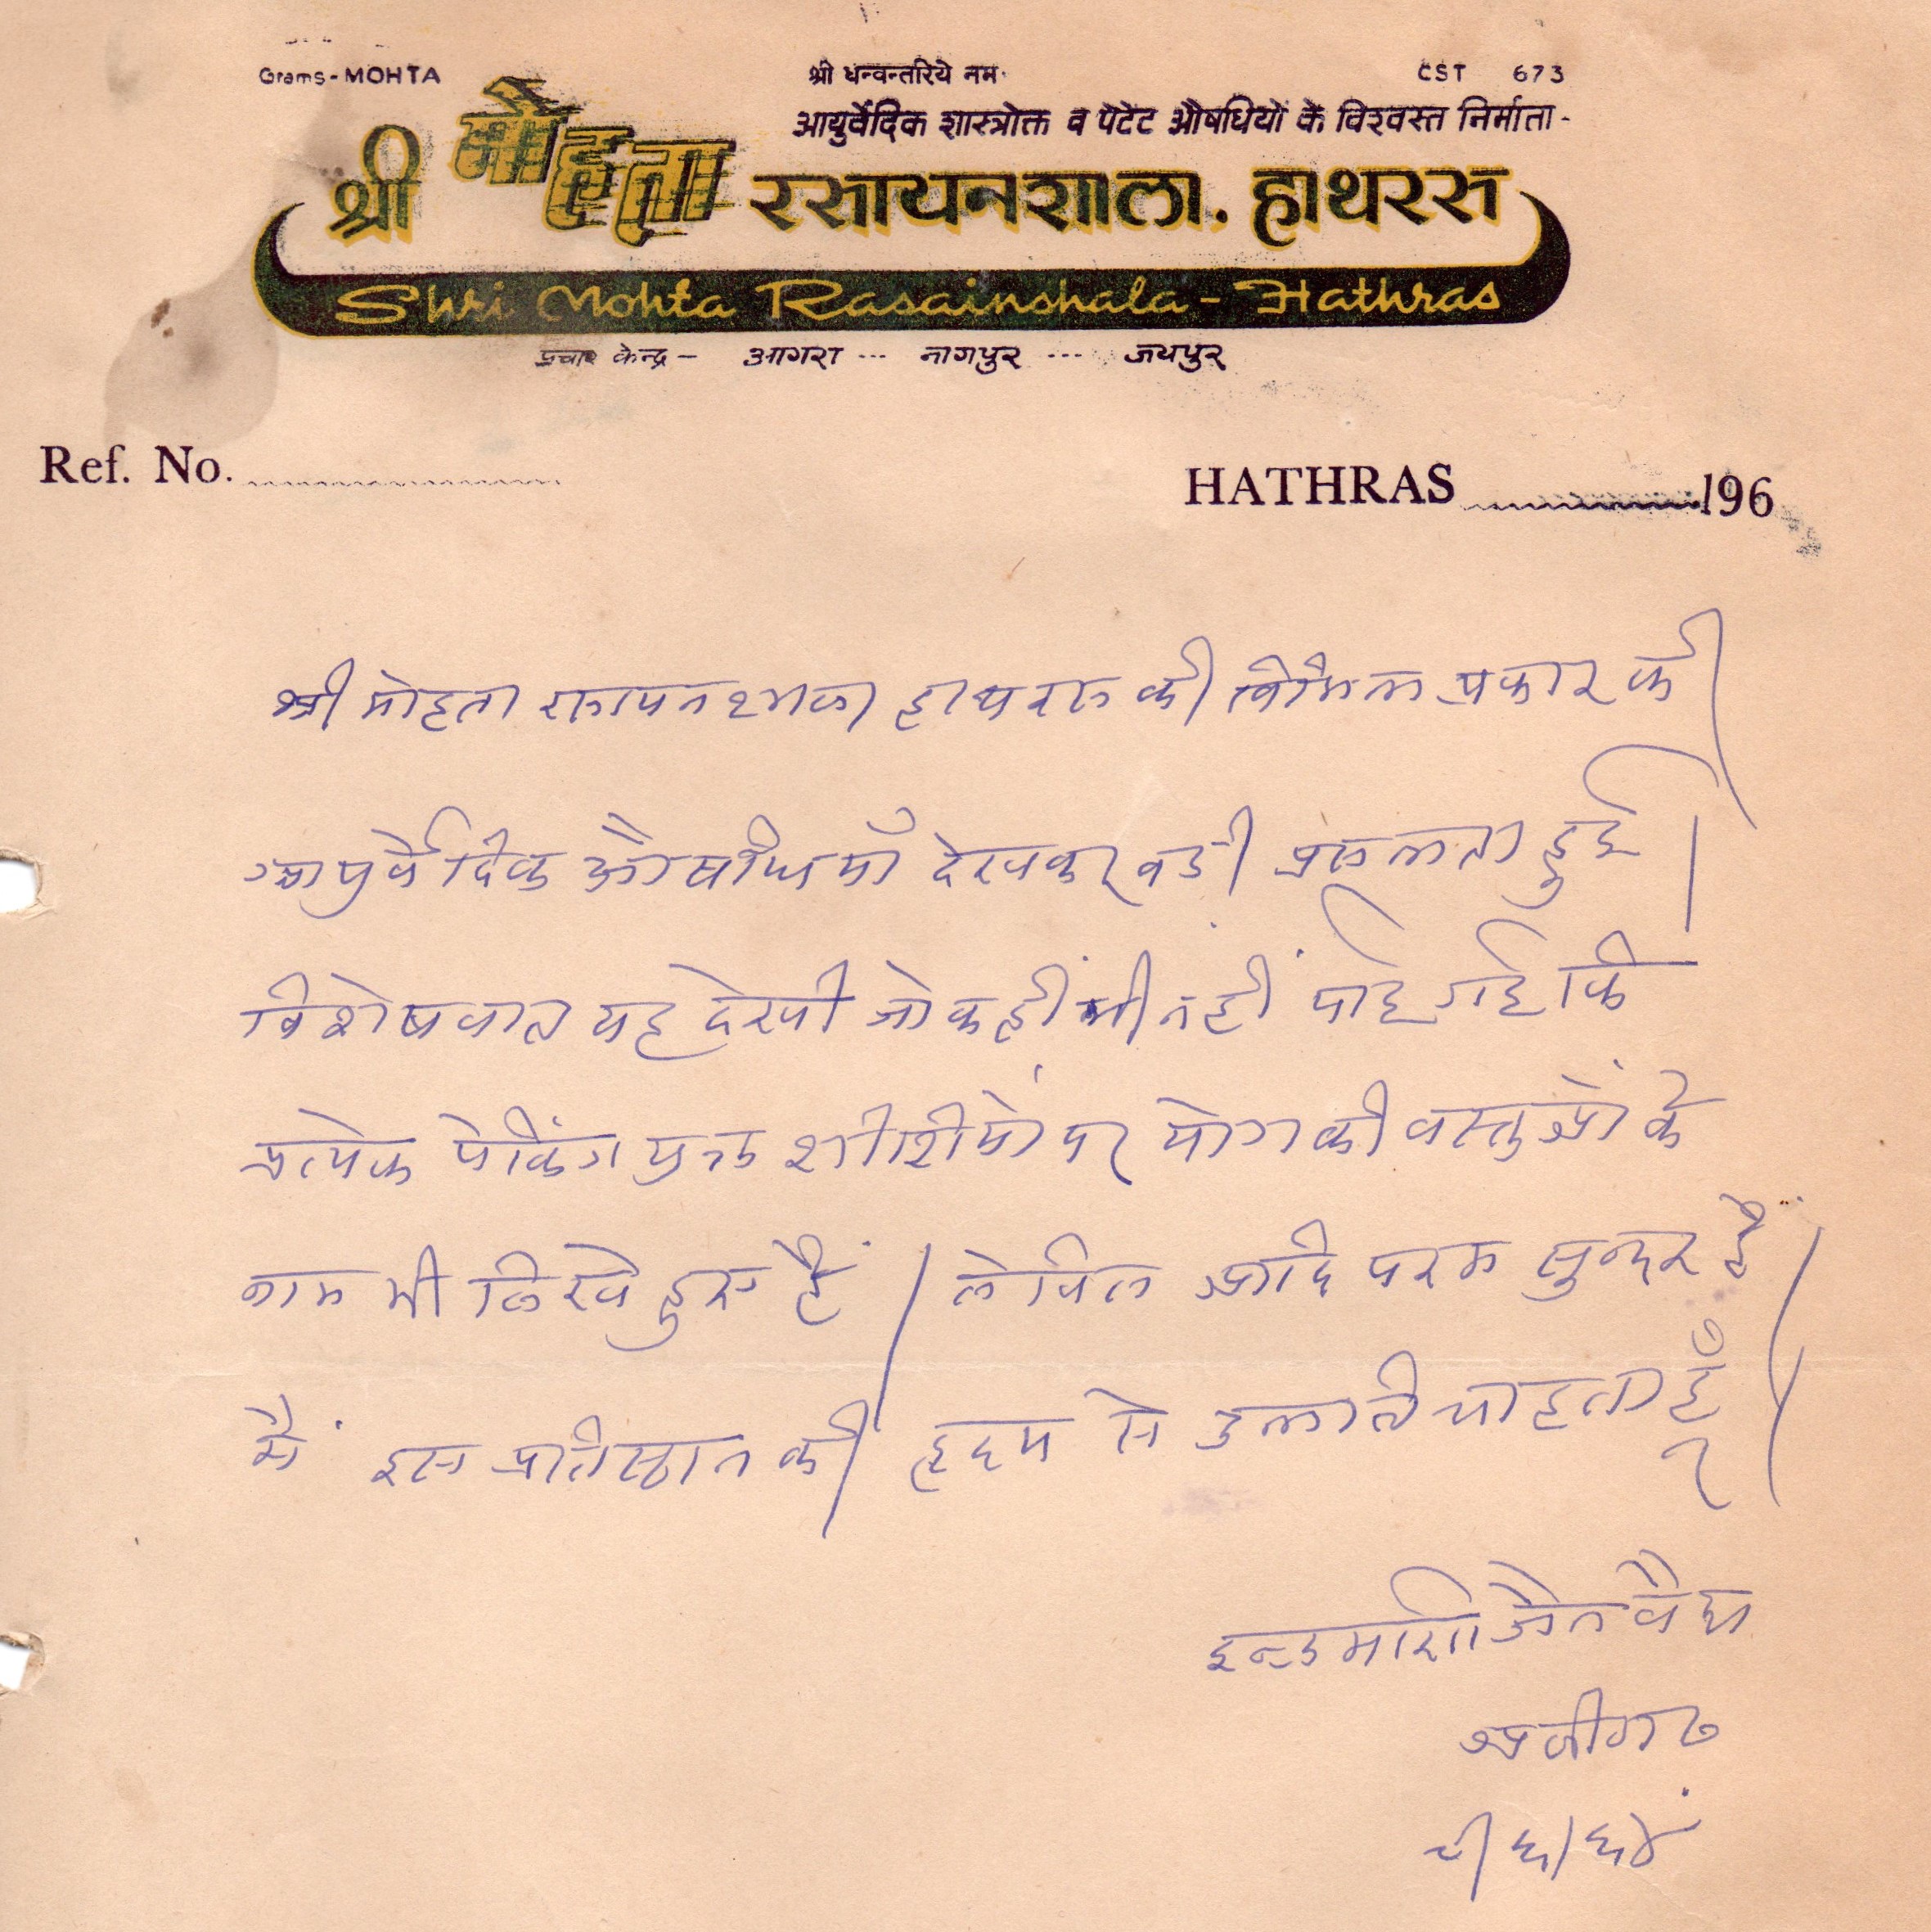 Grams-MOHTA
श्री धन्वन्तरिये नमः
CST 673
आयुर्वेदिक शास्त्रोक्त व पेटेंट औषधियों के विश्वस्त निर्माता-
श्री मोहता रसायनशाला. हाथरस
Shri Mohta Rasainshala - Hathras
प्रचार केन्द्र - आगरा --- नागपुर --- जयपुर
Ref. No.
HATHRAS 196
श्री मोहता रसायनशाला हाथरस की विभिन्न प्रकार की
आयुर्वेदिक औषधियाँ देखकर बडी प्रसन्नता हुई।
विशेष बात यह देखी जो कहीं भी नहीं पाई गई कि
प्रत्येक पेकिंग युक्त शीशियों पर योग की वस्तुओं के
नाम भी लिखे हुए हैं। लेविल आदि परम सुन्दर हैं।
मैं इस प्रतिष्ठान की हृदय से उन्नति चाहता हूँ।
इन्द्रमणि जैन वैद्य
अलीगढ